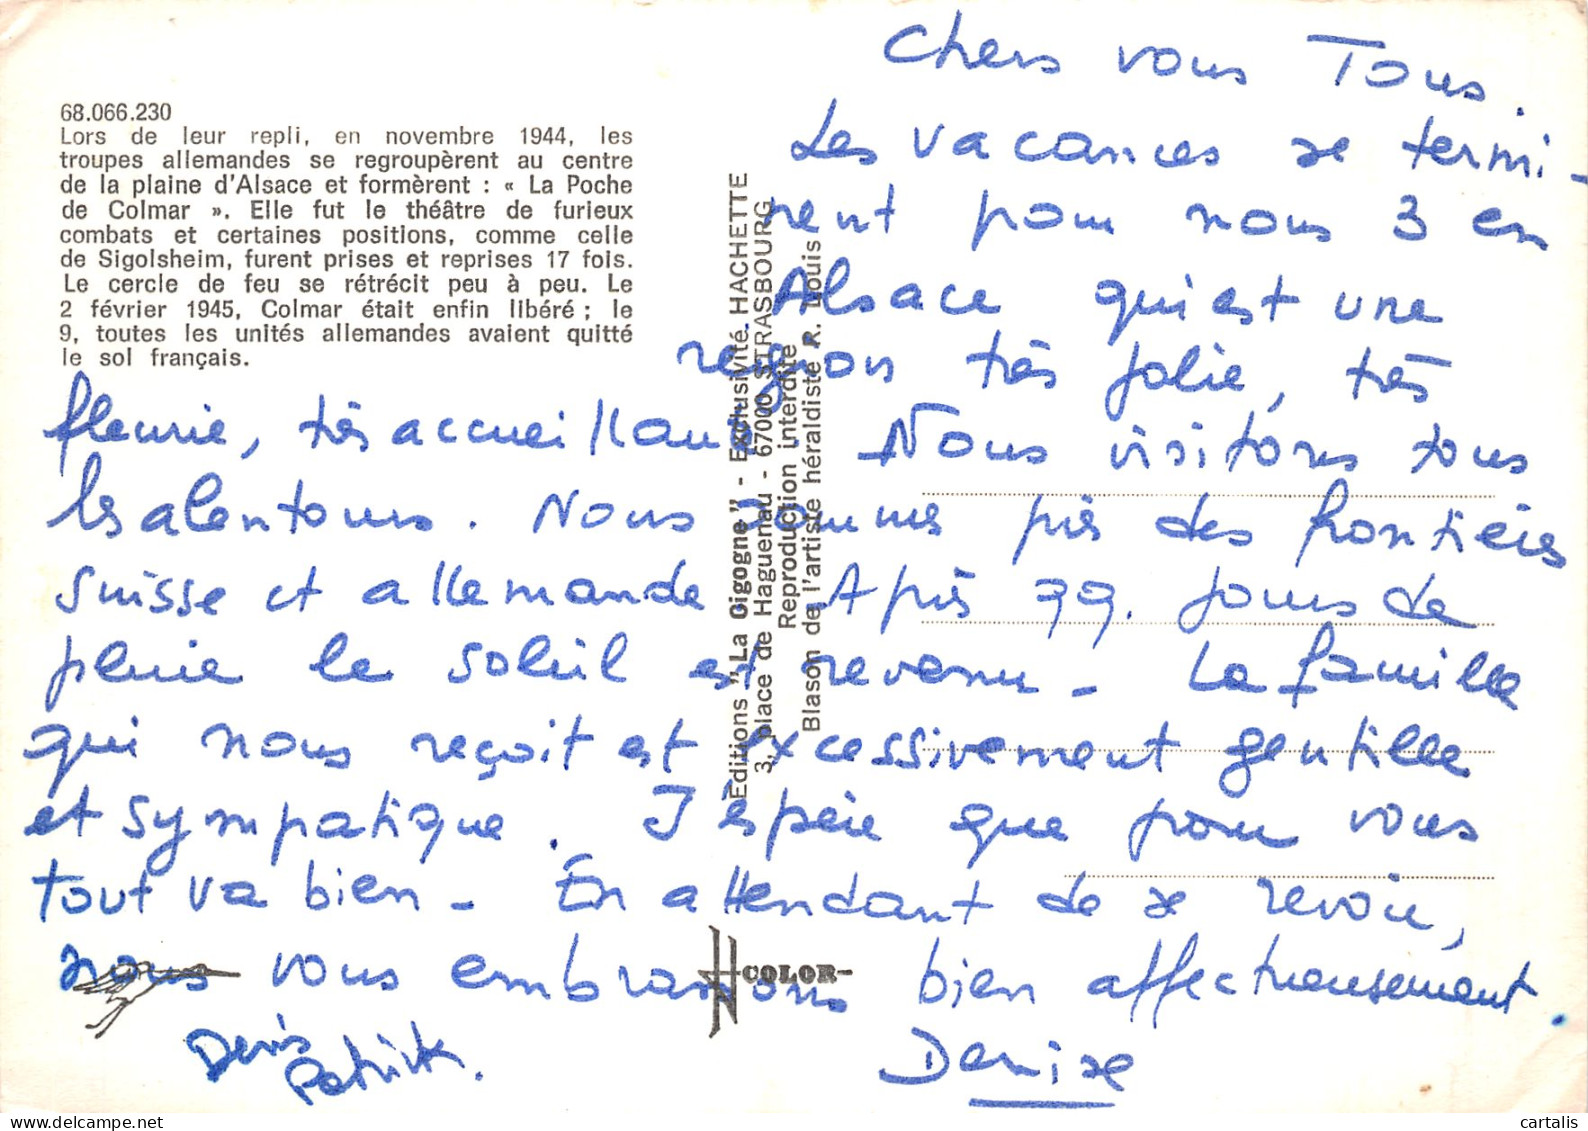 68.066.230
Lors de leur repli, en novembre 1944, les
troupes allemandes se regroupèrent au centre
de la plaine d'Alsace et formèrent : « La Poche
de Colmar ». Elle fut le théâtre de furieux
combats et certaines positions, comme celle
de Sigolsheim, furent prises et reprises 17 fois.
Le cercle de feu se rétrécit peu à peu. Le
2 février 1945, Colmar était enfin libéré ; le
9, toutes les unités allemandes avaient quitté
le sol français.
Editions "La Cigogne" - Exclusivité HACHETTE
3, place de Haguenau - 67000 STRASBOURG
Reproduction interdite
Blason de l'artiste héraldiste R. Louis
Chers vous Tous.
Les vacances se termi-
nent pour nous 3 en
Alsace qui est une
region très jolie, très
fleurie, très accueillante. Nous visitons tous
les alentours. Nous sommes près des frontières
suisse et allemande. Après 99. jours de
pluie le soleil est revenu - La famille
qui nous reçoit est excessivement gentille
et sympatique. J'espère que pour vous
tout va bien - En attendant de se revoir,
nous vous embrassons bien affectueusement.
Denis
Patrick.
Denise
COLOR-
cartalis